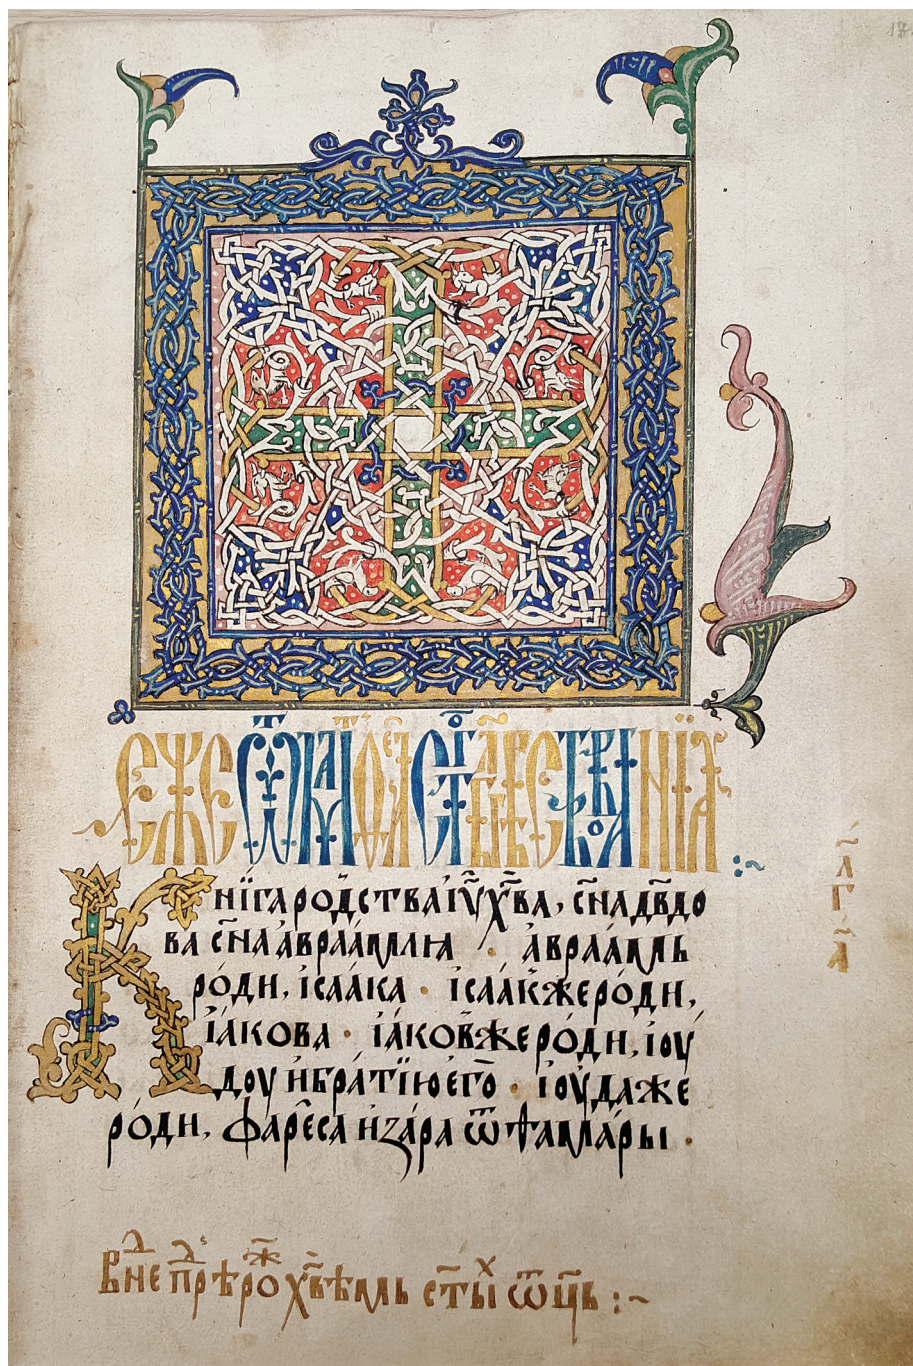 Е҆́же ѿ маⷮѳеⷶ ст҃ое бл҃говѣствова́нїа :~
Кни́га родства̀ і҆ѵ҃ х҃ва, с҃на дв҃до
ва с҃на а҆враа́млѧ · а҆враа́мь
ро́ди, і҆саа́ка · і҆саа́кже ро́ди,
і҆а́кова · і҆а́ковже ро́ди, і҆оу́
доу и҆ бра́тїю є҆го̀ · і҆оу́даже
ро́ди, фаре́са и҆ за́ра ѿ ѳама́ры ·
л҃
г҃
а҃
В неⷣ преⷣ рожⷭ҇тво́мь ст҃ыⷯ ѿц҃ь :~